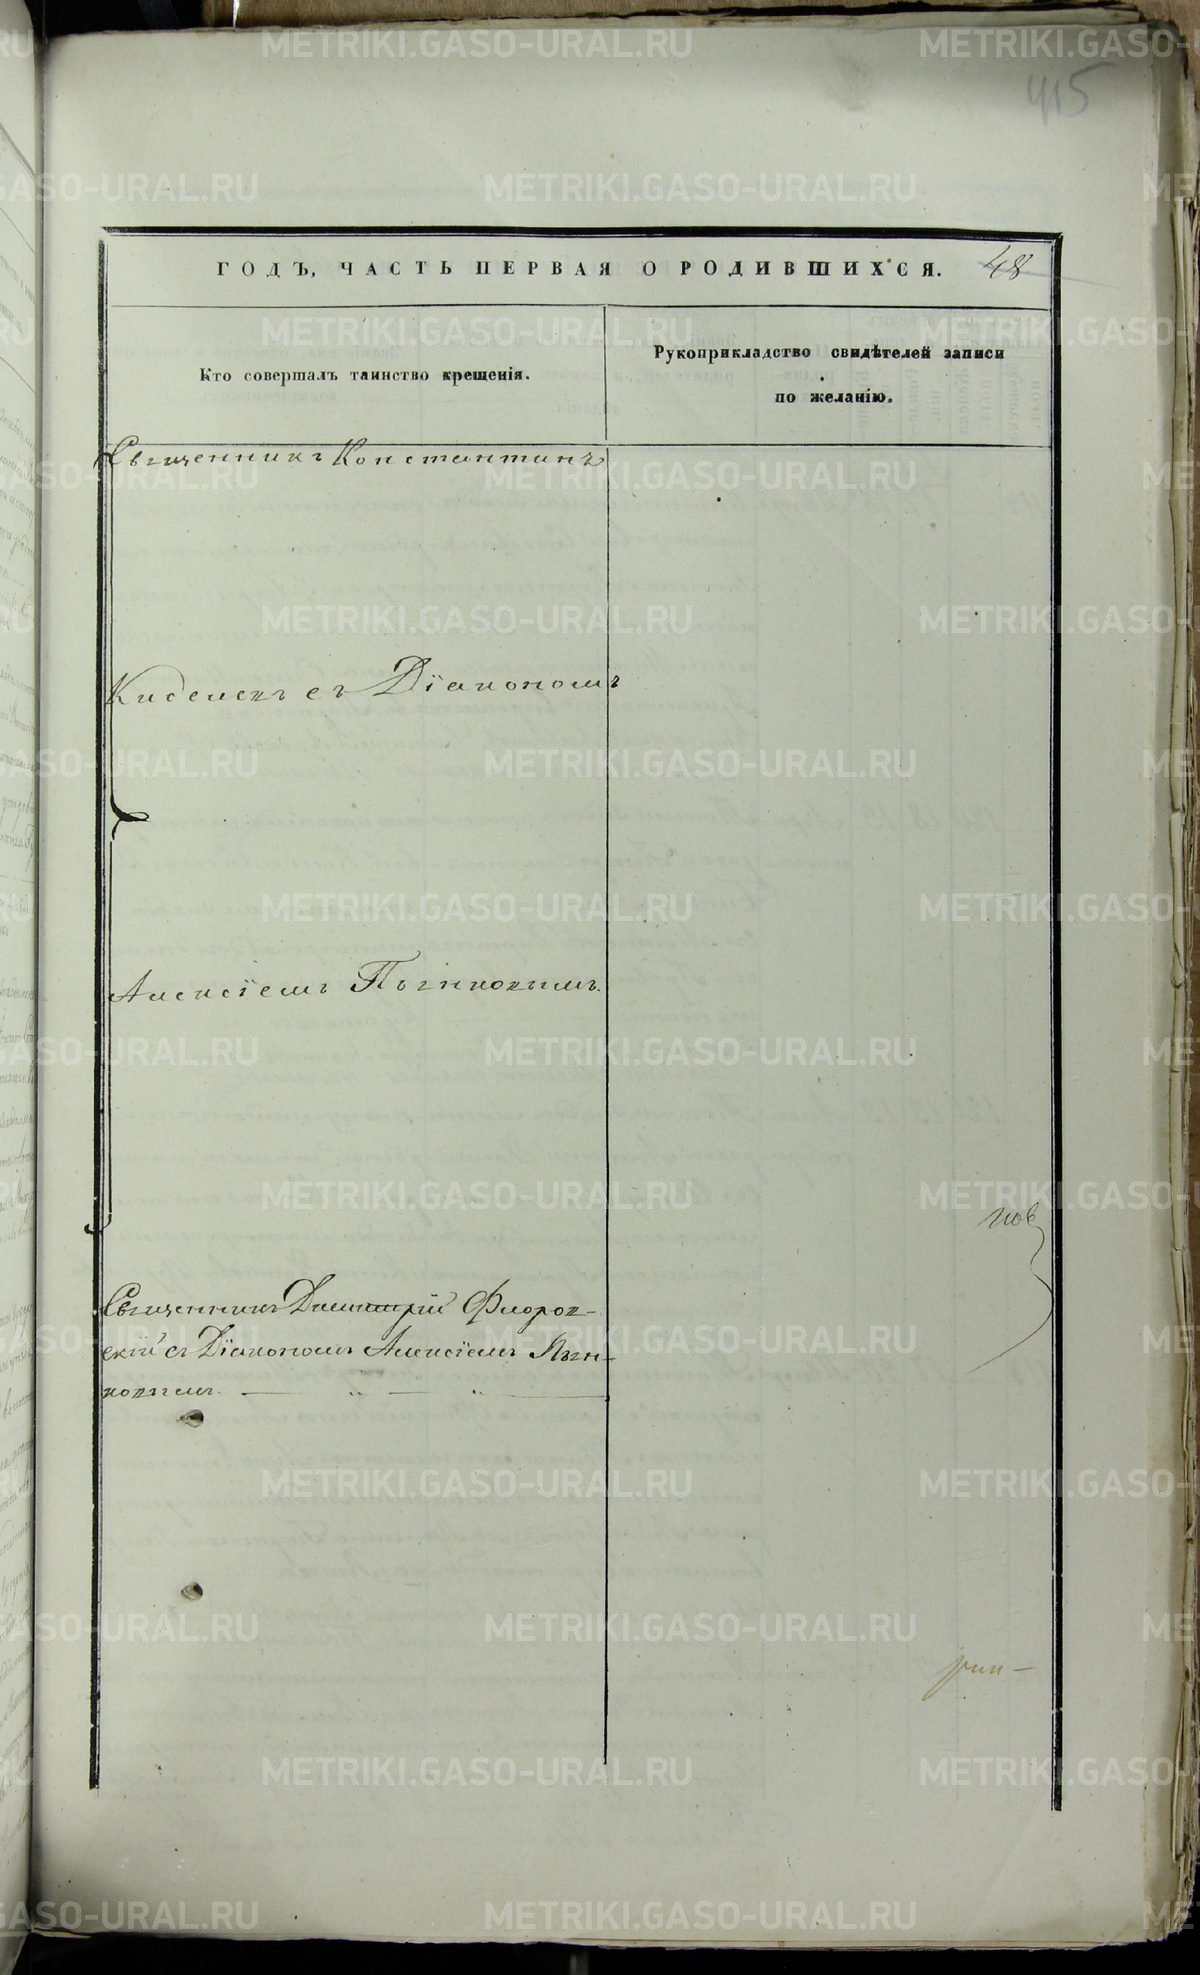 415
ГОДЪ, ЧАСТЬ ПЕРВАЯ О РОДИВШИХСЯ. 48
Кто совершалъ таинство крещенія.
Рукоприкладство свидѣтелей записи
по желанію.
Священникъ Константинъ
съ Діакономъ
Алексіемъ
Священникъ Димитрій Флоров-
скій съ Діакономъ Алексіемъ
METRIKI.GASO-URAL.RU